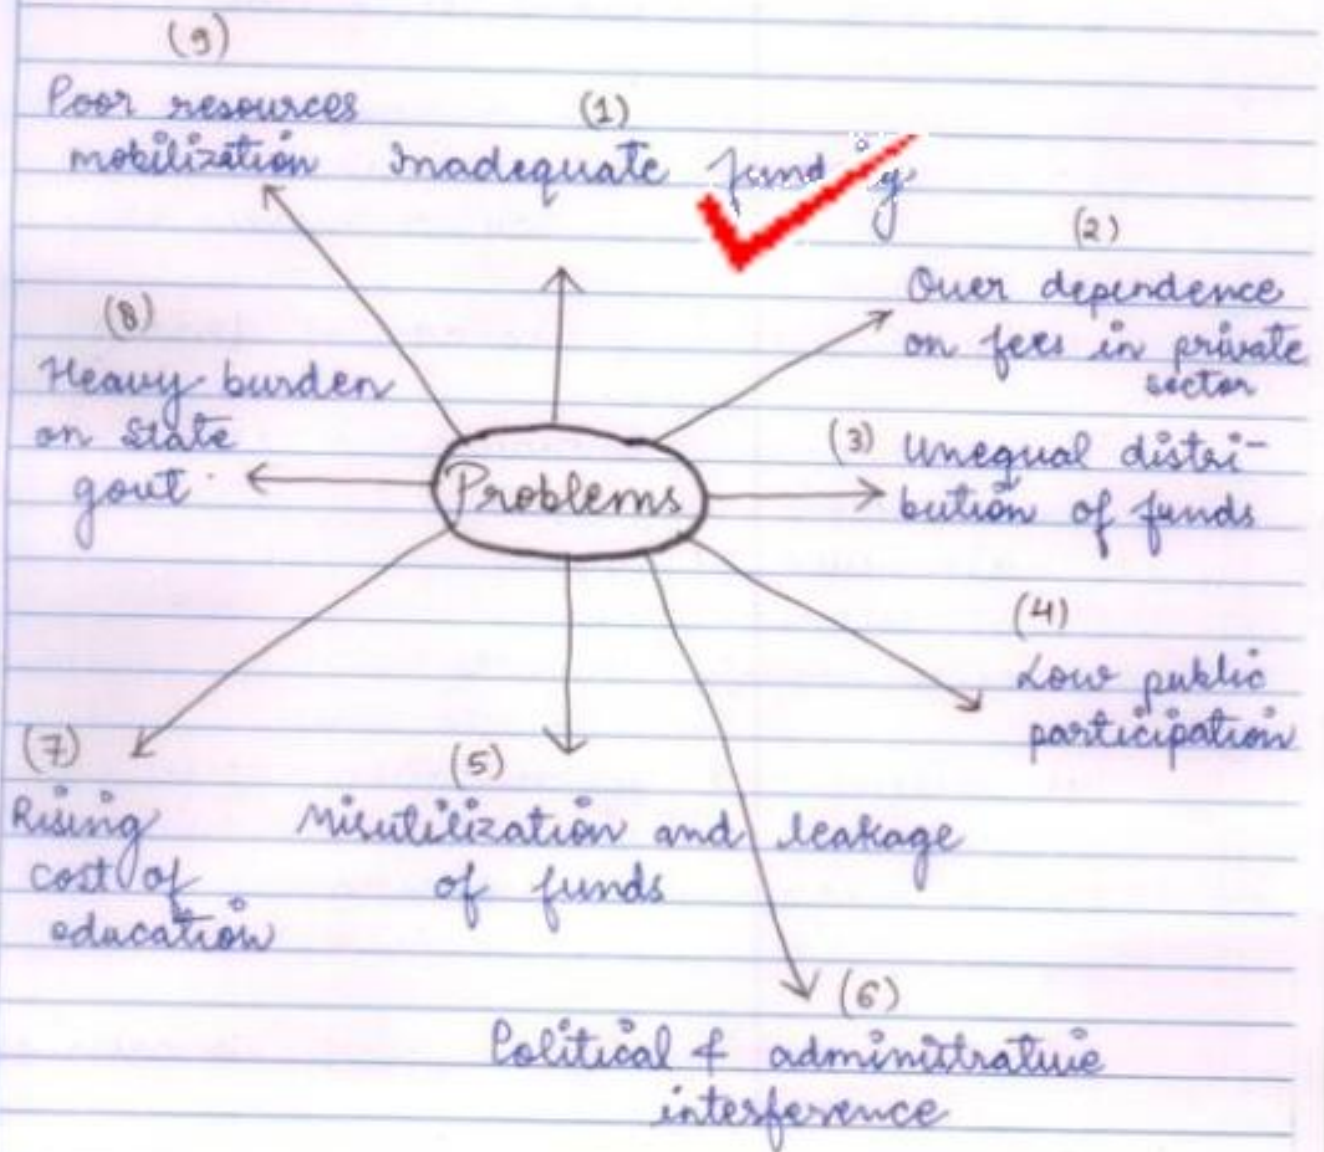 (9)
Poor resources
mobilization
(1)
Inadequate funding
(2)
Over dependence
on fees in private
sector
(8)
Heavy burden
on State
govt.
Problems
(3) Unequal distri-
bution of funds
(4)
Low public
participation
(7)
Rising
cost of
education
(5)
Misutilization and leakage
of funds
(6)
Political & administrative
interference